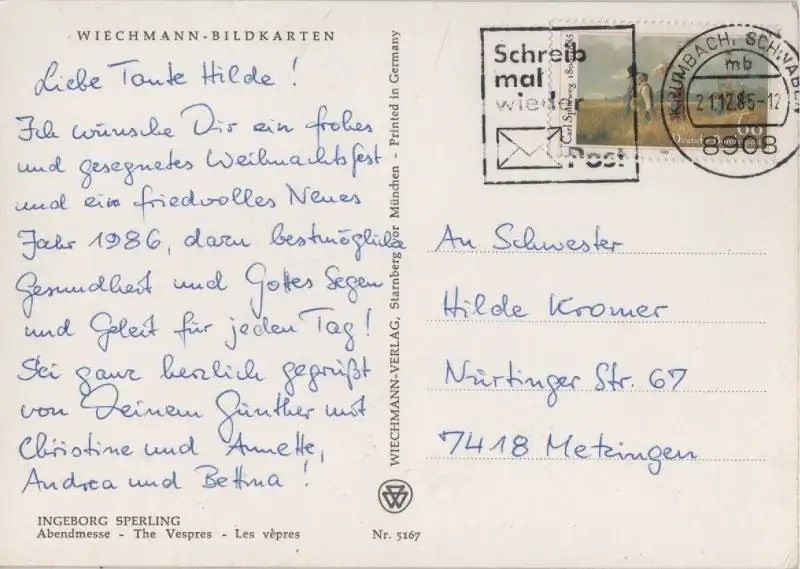 WIECHMANN-BILDKARTEN
Liebe Tante Hilde!
Ich wünsche Dir ein frohes
und gesegnetes Weihnachtsfest
und ein friedvolles Neues
Jahr 1986, dazu bestmögliche
Gesundheit und Gottes Segen
und Geleit für jeden Tag!
Sei ganz herzlich gegrüßt
von Deinem Günther mit
Christine und Annette,
Andrea und Bettina!
INGEBORG SPERLING
Abendmesse - The Vespres - Les vèpres
Nr. 5167
WIECHMANN-VERLAG, Starnberg vor München - Printed in Germany
Schreib
mal
wieder
Post
Carl Spitzweg
60
KRUMBACH, SCHWABEN
mb
21.12.85-12
8908
An Schwester
Hilde Kromer
Nürtinger Str. 67
7418 Metzingen